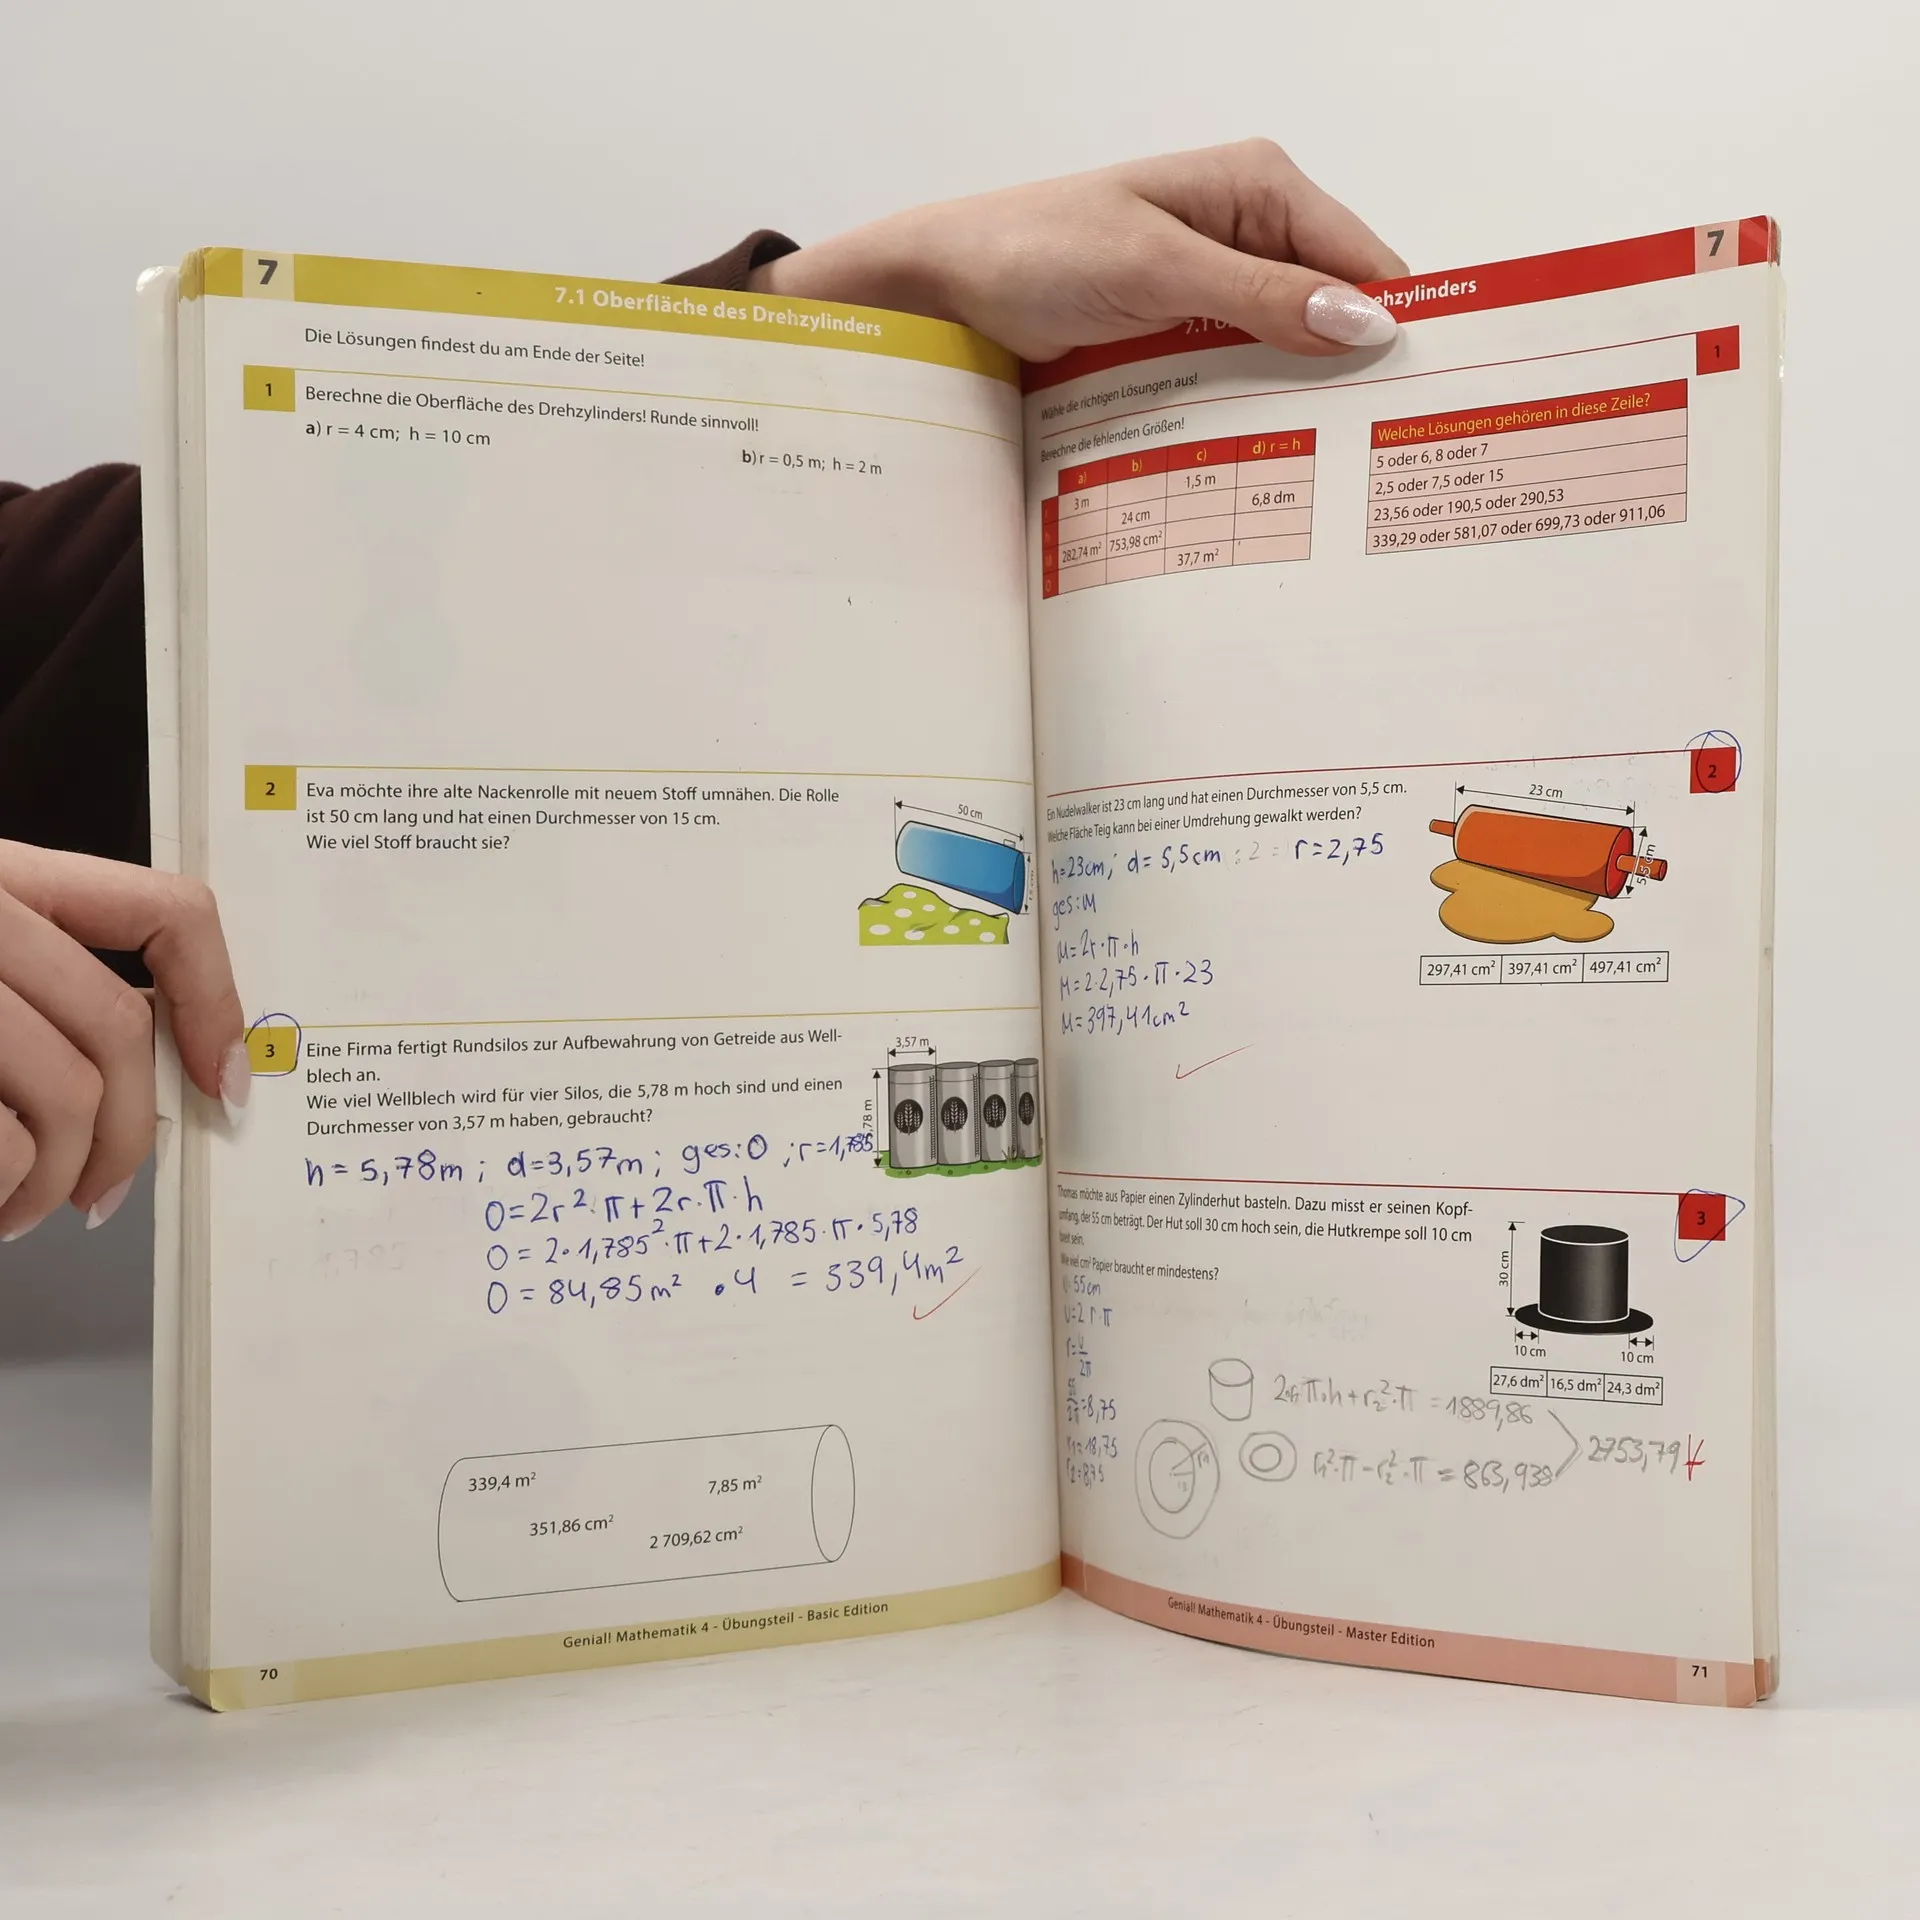 7
7.1 Oberfläche des Drehzylinders
Die Lösungen findest du am Ende der Seite!
1
Berechne die Oberfläche des Drehzylinders! Runde sinnvoll!
a) r = 4 cm; h = 10 cm
b) r = 0,5 m; h = 2 m
2
Eva möchte ihre alte Nackenrolle mit neuem Stoff umnähen. Die Rolle
ist 50 cm lang und hat einen Durchmesser von 15 cm.
Wie viel Stoff braucht sie?
50 cm
3
Eine Firma fertigt Rundsilos zur Aufbewahrung von Getreide aus Well-
blech an.
Wie viel Wellblech wird für vier Silos, die 5,78 m hoch sind und einen
Durchmesser von 3,57 m haben, gebraucht?
3,57 m
,78 m
h = 5,78m ; d=3,57m ; ges:O ; r=1,785
O=2r²·π+2r·π·h
O = 2·1,785²·π+2·1,785·π·5,78
O = 84,85m² ·4 = 339,4m²
339,4 m²
7,85 m²
351,86 cm²
2 709,62 cm²
Genial! Mathematik 4 - Übungsteil - Basic Edition
70
7
7.1
ehzylinders
Wähle die richtigen Lösungen aus!
1
Berechne die fehlenden Größen!
a) b) c) d) r = h
r 3 m 1,5 m
h 24 cm 6,8 dm
M 282,74 m² 753,98 cm²
O 37,7 m²
Welche Lösungen gehören in diese Zeile?
5 oder 6, 8 oder 7
2,5 oder 7,5 oder 15
23,56 oder 190,5 oder 290,53
339,29 oder 581,07 oder 699,73 oder 911,06
2
Ein Nudelwalker ist 23 cm lang und hat einen Durchmesser von 5,5 cm.
Welche Fläche Teig kann bei einer Umdrehung gewalkt werden?
23 cm
5,5 cm
h=23cm; d= 5,5cm :2 = r=2,75
ges:M
M=2r·π·h
M=2·2,75·π·23
M=397,41cm²
297,41 cm² 397,41 cm² 497,41 cm²
3
Thomas möchte aus Papier einen Zylinderhut basteln. Dazu misst er seinen Kopf-
umfang, der 55 cm beträgt. Der Hut soll 30 cm hoch sein, die Hutkrempe soll 10 cm
breit sein.
Wie viel cm² Papier braucht er mindestens?
30 cm
10 cm
10 cm
27,6 dm² 16,5 dm² 24,3 dm²
U=55cm
U=2r·π
r=U/2π
55/2π=8,75
r1=18,75
r2=8,75
r1
π·h+r2²·π =1889,86
r1²·π-r2²·π =863,938
2753,79
Genial! Mathematik 4 - Übungsteil - Master Edition
71